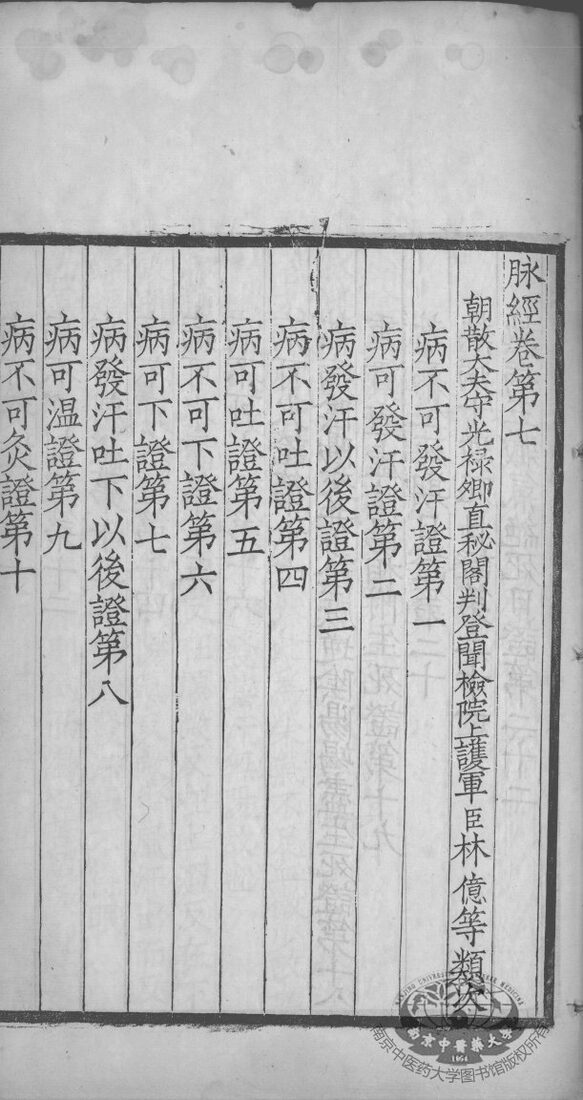 脉經卷第七
朝散大夫守光祿卿直秘閣判登聞檢院上護軍臣林億等類次
病不可發汗證第一
病可發汗證第二
病發汗以後證第三
病不可吐證第四
病可吐證第五
病不可下證第六
病可下證第七
病發汗吐下以後證第八
病可温證第九
病不可灸證第十
南京中醫藥大學
1954
南京中医药大学图书馆版权所有